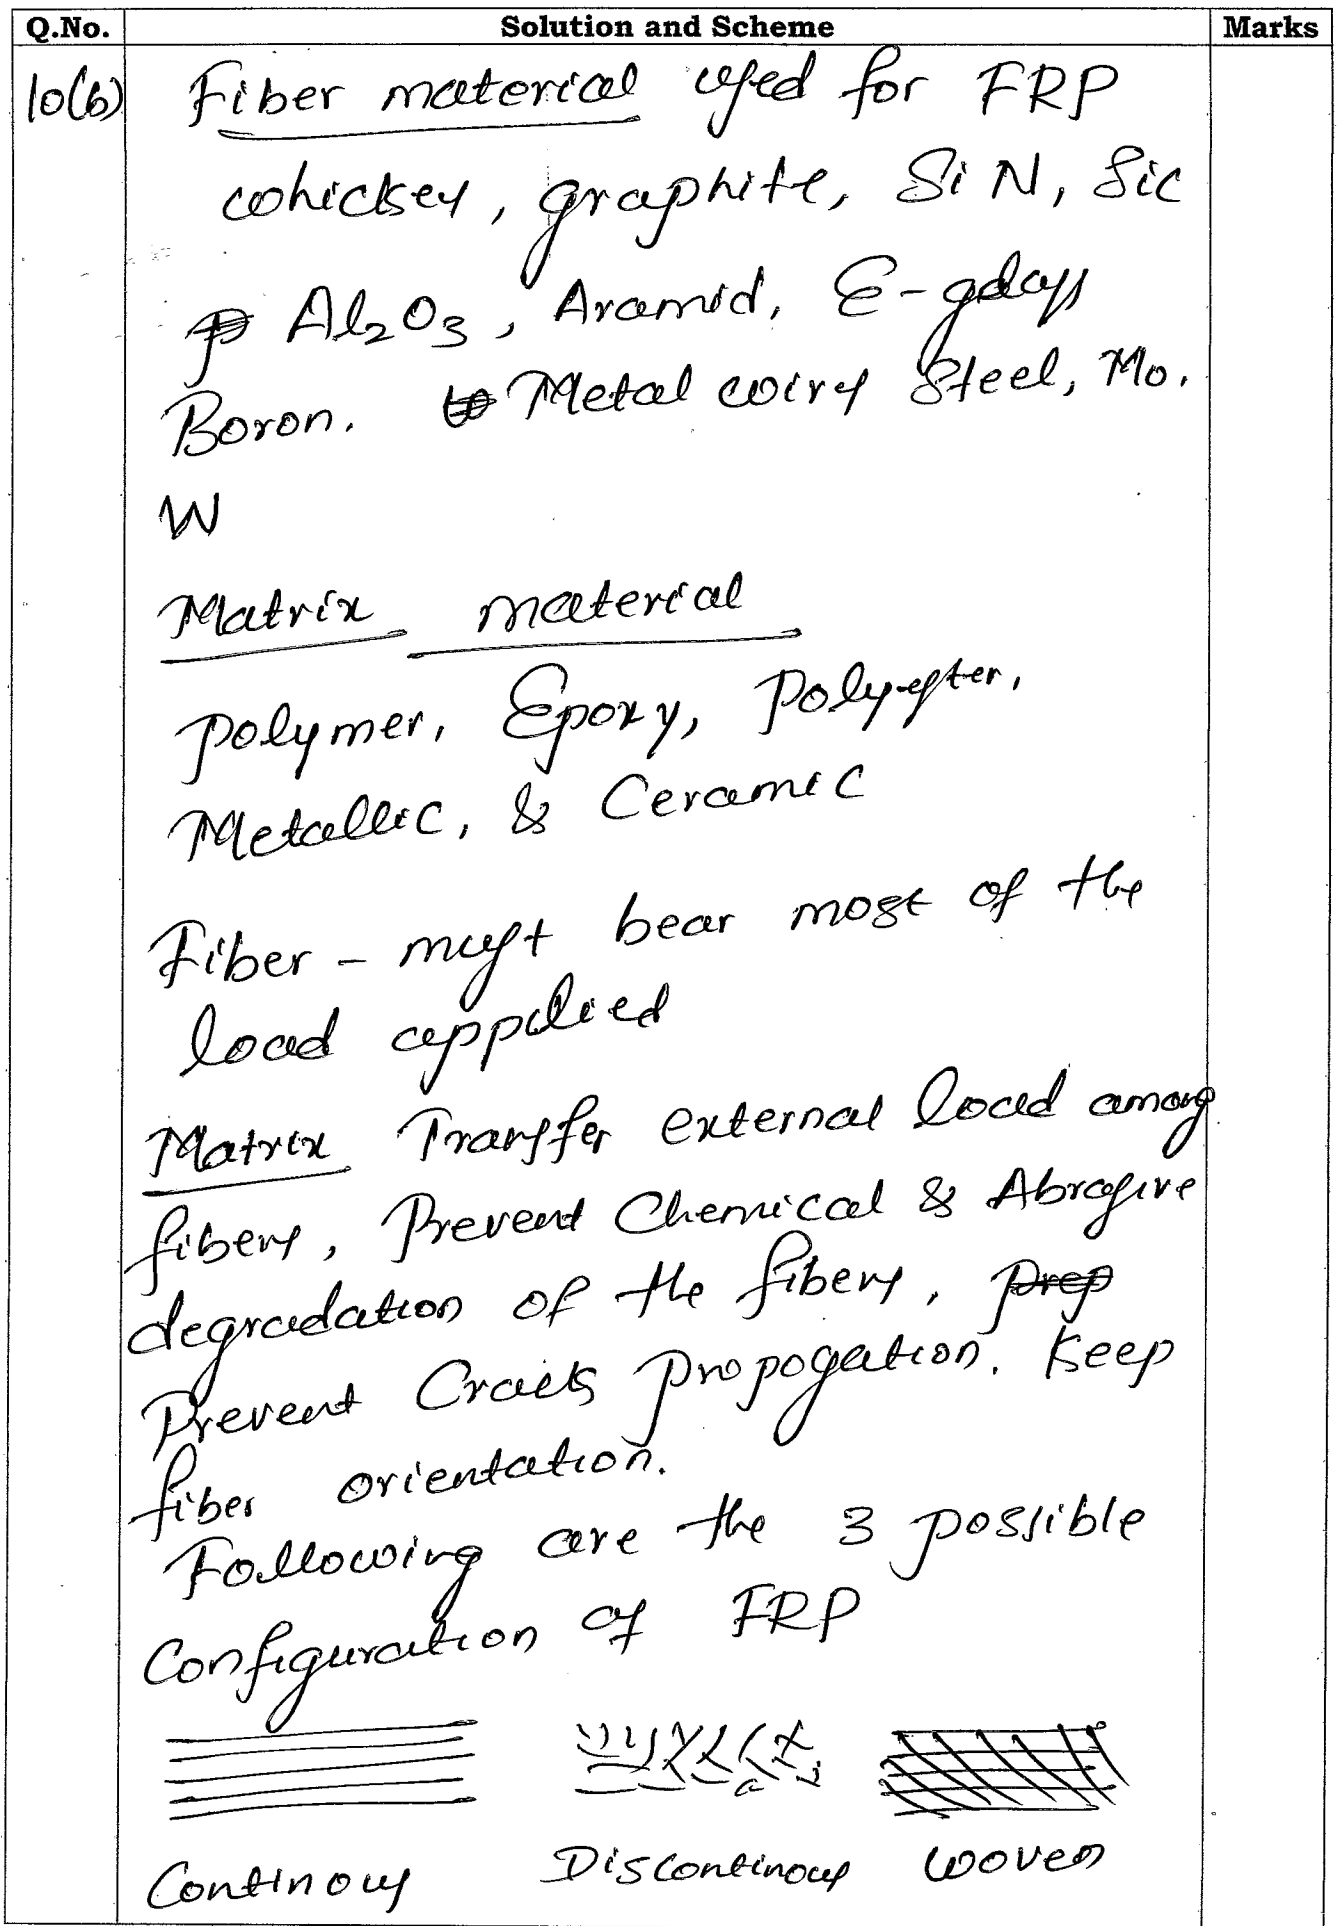 Q.No. Solution and Scheme Marks
10(b) Fiber material used for FRP
whickses, graphite, SiN, Sic
Al₂O₃, Aramid, E-glass
Boron. Metal wires Steel, Mo.
W
Matrix material
Polymer, Epoxy, Polyester,
Metallic, & Ceramic
Fiber - must bear most of the
load applied
Matrix Transfer external load among
fibers, Prevent Chemical & Abrasive
degradation of the fibers, Prep
Prevent Cracks Propogation. Keep
fiber orientation.
Following are the 3 possible
Configuration of FRP
Continous Discontinous Woven